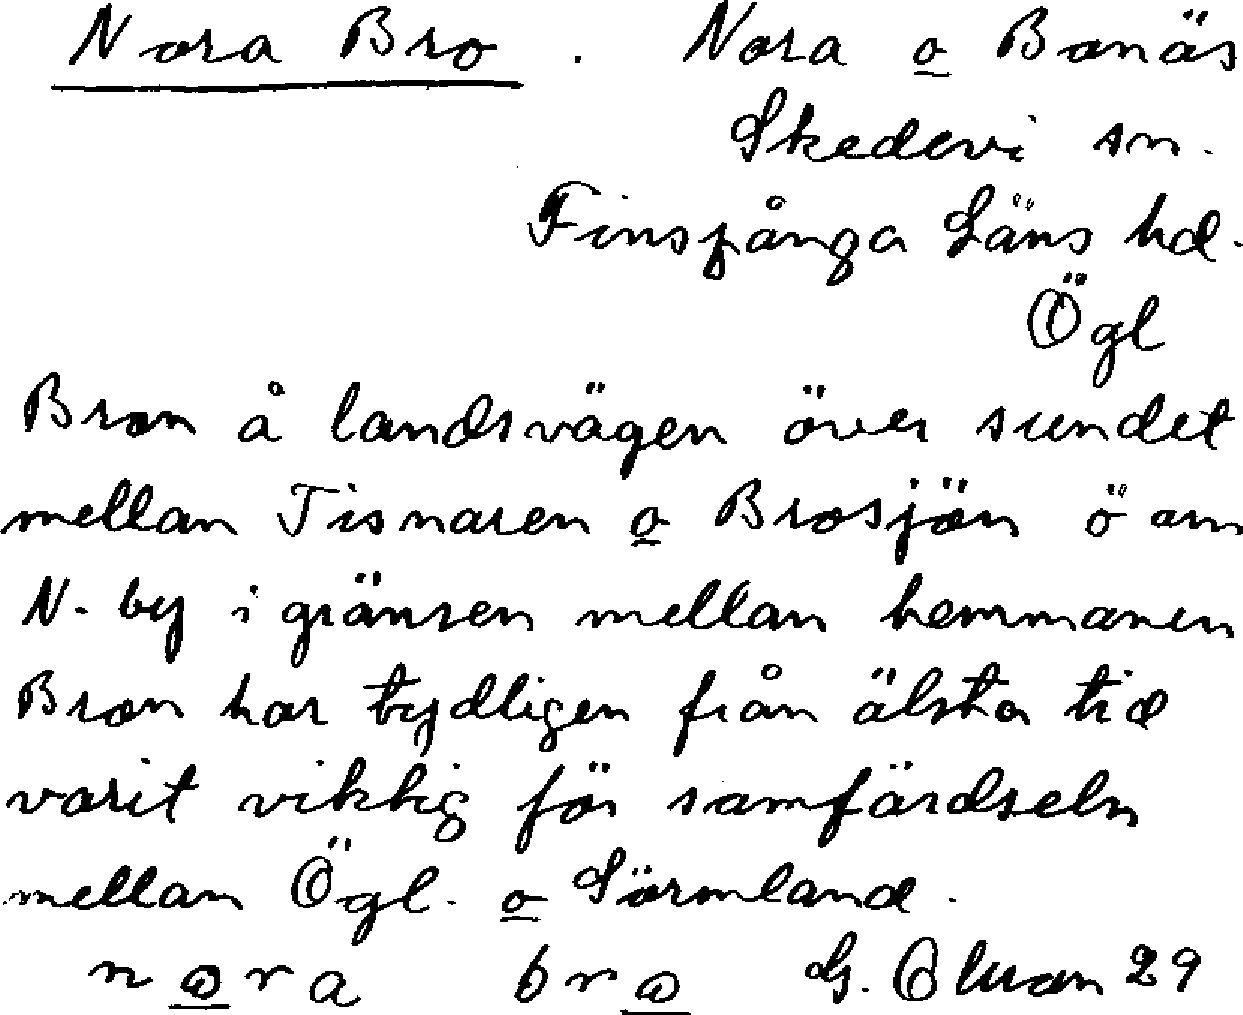 Nora Bro. Nora o Bonäs
Skedevi sn.
Finspånga Läns hd.
Ögl
Bron å landsvägen över sundet
mellan Tisnaren o Brosjön ö om
N. by i gränsen mellan hemmanen
Bron har tydligen från älsta tid
varit viktig för samfärdseln
mellan Ögl. o Sörmland.
nora bro G. 29